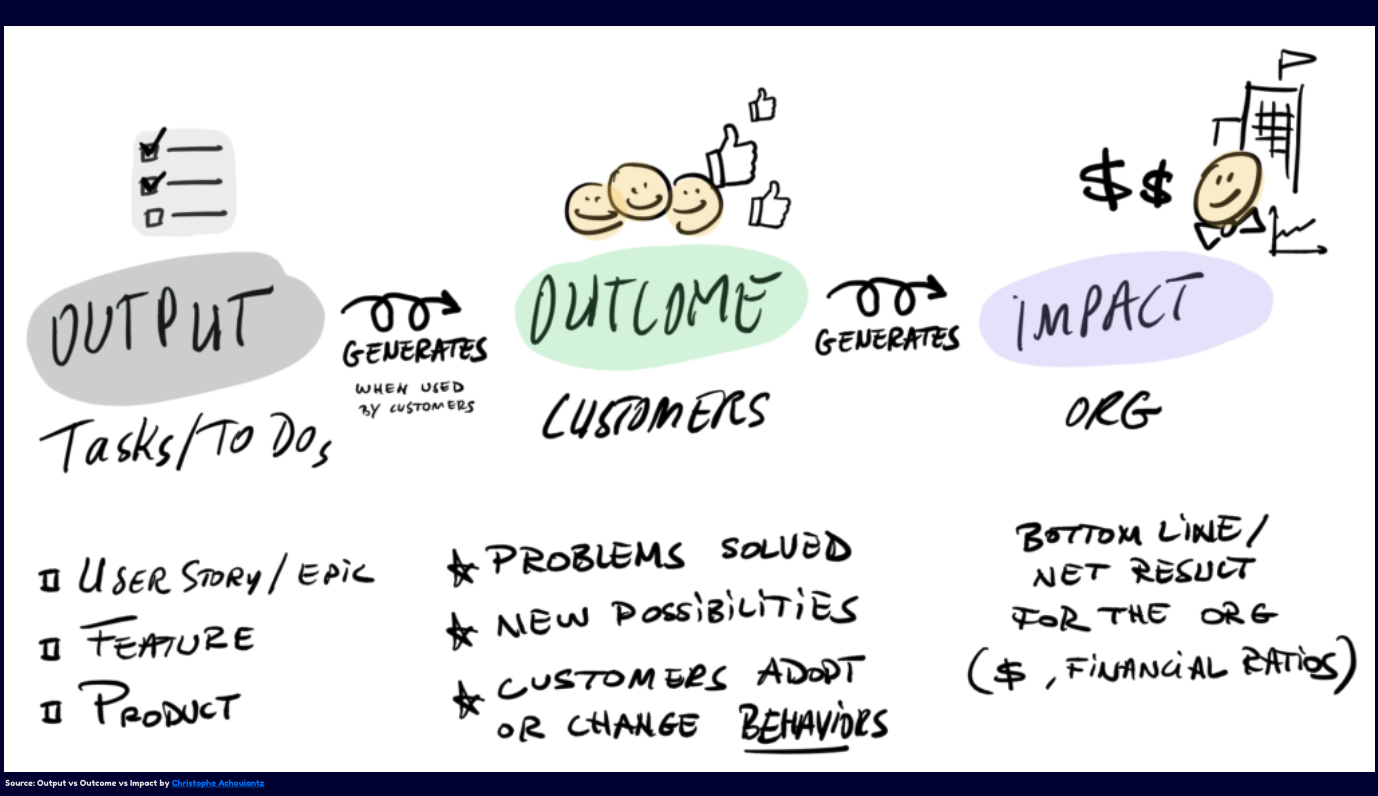 OUTPUT
Tasks/To Dos
GENERATES
WHEN USED
BY CUSTOMERS
OUTCOME
CUSTOMERS
GENERATES
IMPACT
ORG
USER STORY/EPIC
FEATURE
PRODUCT
PROBLEMS SOLVED
NEW POSSIBILITIES
CUSTOMERS ADOPT
OR CHANGE BEHAVIORS
BOTTOM LINE/
NET RESULT
FOR THE ORG
($, FINANCIAL RATIOS)
$ $
Source: Output vs Outcome vs Impact by Christophe Achouiantz